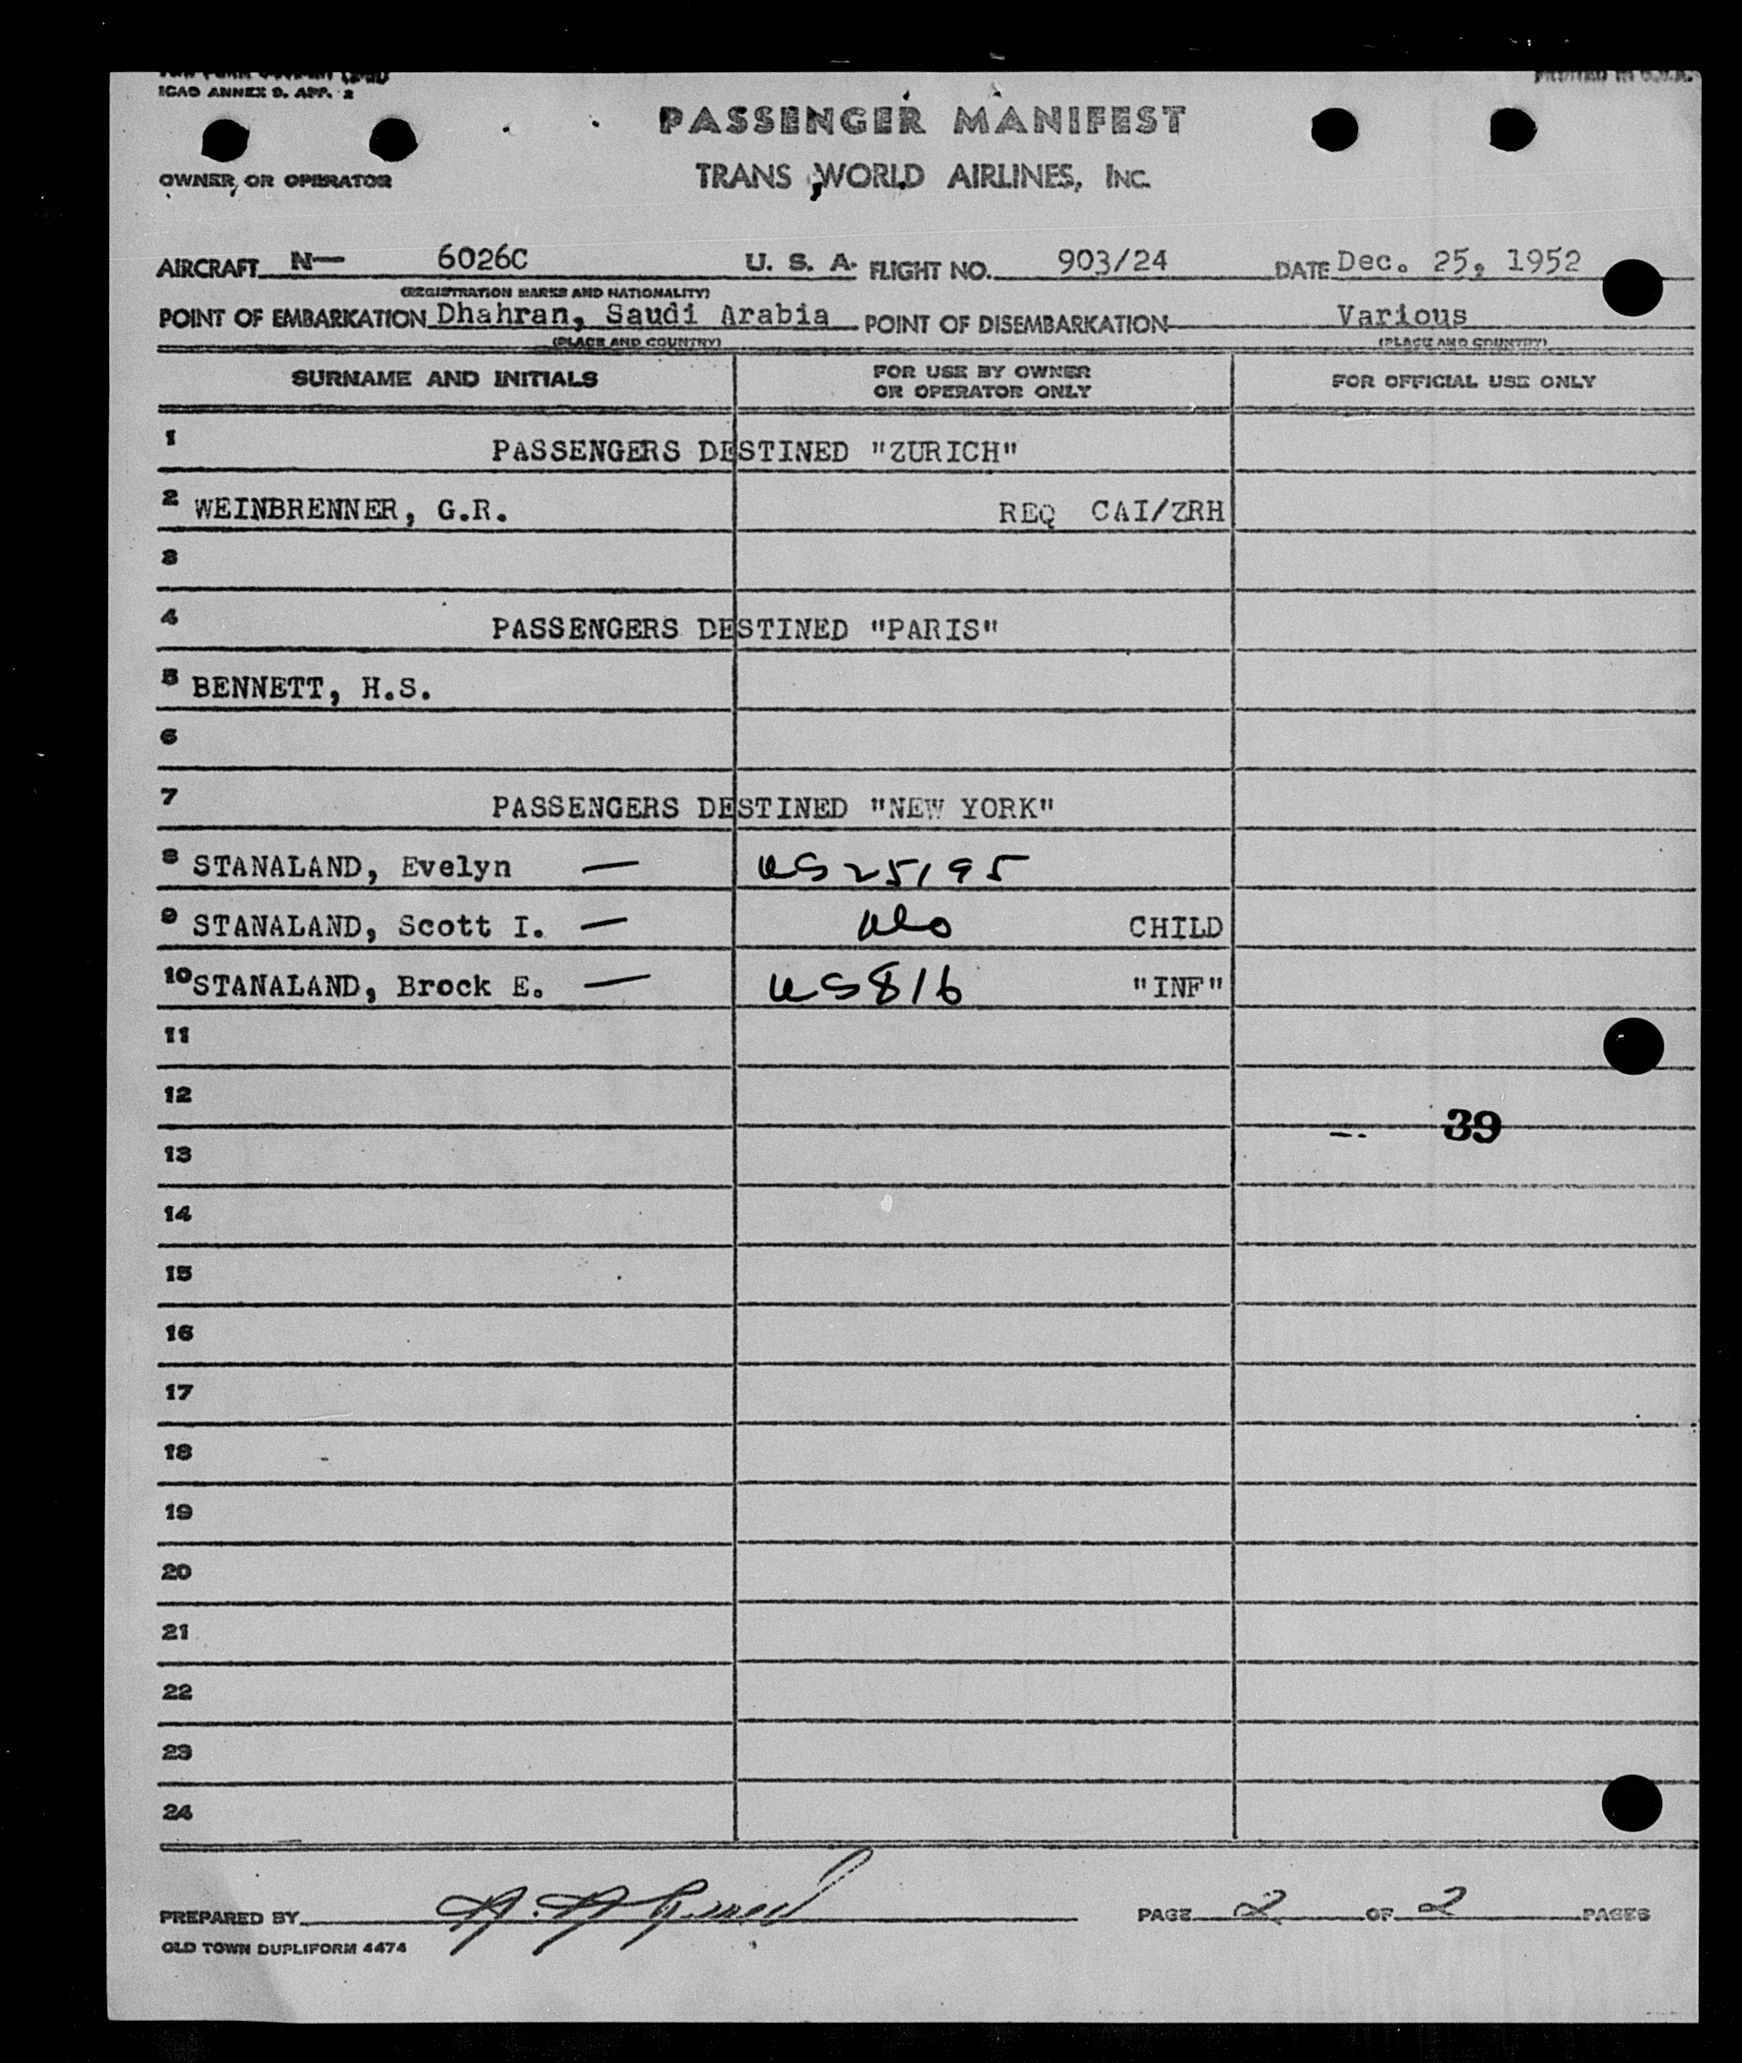 ICAO ANNEX 9. APP. 2
PRINTED IN U.S.A.
PASSENGER MANIFEST
OWNER OR OPERATOR
TRANS WORLD AIRLINES, INC.
AIRCRAFT N— 6026C U. S. A. FLIGHT NO. 903/24 DATE Dec. 25, 1952
(REGISTRATION MARKS AND NATIONALITY)
POINT OF EMBARKATION Dhahran, Saudi Arabia POINT OF DISEMBARKATION Various
(PLACE AND COUNTRY) (PLACE AND COUNTRY)
SURNAME AND INITIALS FOR USE BY OWNER OR OPERATOR ONLY FOR OFFICIAL USE ONLY
1 PASSENGERS DESTINED "ZURICH"
2 WEINBRENNER, G.R. REQ CAI/ZRH
3
4 PASSENGERS DESTINED "PARIS"
5 BENNETT, H.S.
6
7 PASSENGERS DESTINED "NEW YORK"
8 STANALAND, Evelyn — US25195
9 STANALAND, Scott I. — CHILD
10 STANALAND, Brock E. — US816 "INF"
11
12
39
13
14
15
16
17
18
19
20
21
22
23
24
PREPARED BY PAGE 2 OF 2 PAGES
OLD TOWN DUPLIFORM 4474